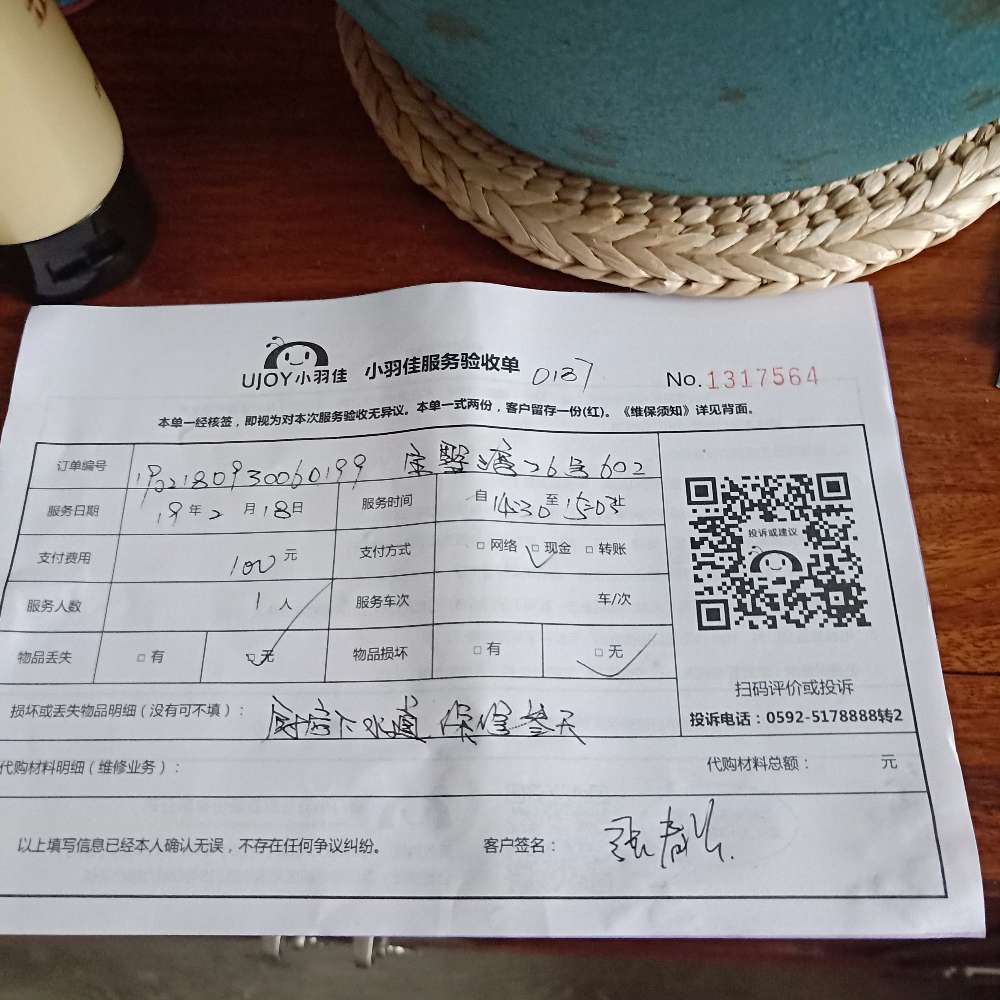 UJOY小羽佳 小羽佳服务验收单 0137 No.1317564
本单一经核签，即视为对本次服务验收无异议。本单一式两份，客户留存一份(红)。《维保须知》详见背面。
订单编号 26号602
服务日期 19年2月18日 服务时间 自14:30至15:03止
支付费用 100元 支付方式 □网络 □现金 □转账
服务人数 1人 服务车次 车/次
物品丢失 □有 □无 物品损坏 □有 □无
投诉或建议
扫码评价或投诉
投诉电话：0592-5178888转2
损坏或丢失物品明细（没有可不填）： 厨房下水道 保修叁天
代购材料明细（维修业务）： 代购材料总额： 元
以上填写信息已经本人确认无误，不存在任何争议纠纷。 客户签名：